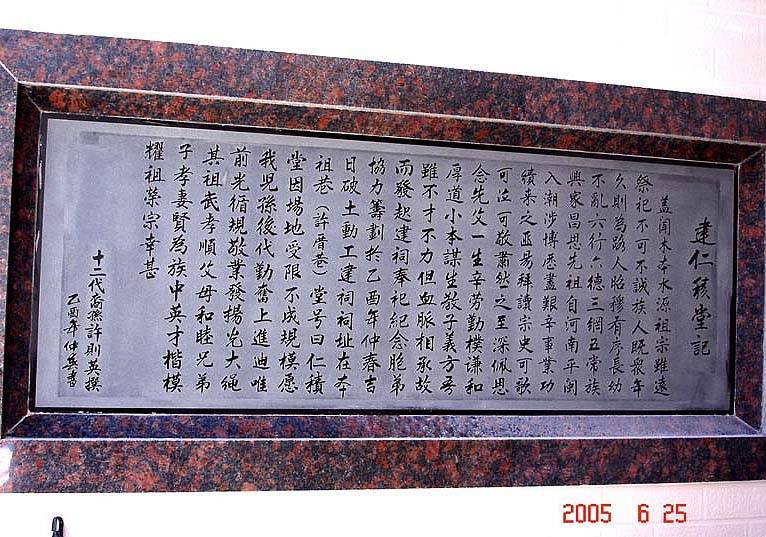 建仁積堂記
蓋聞木本水源祖宗雖遠
祭祀不可不誠族人既衆年
久則為路人昭穆有序長幼
不亂六行六德三綱五常族
興家昌思先祖自河南平閩
入潮涉博歷盡艱辛事業功
績來之匪易拜讀宗史可歌
可泣可敬肅然之至深佩恩
念先父一生辛勞勤樸謙和
厚道小本謀生教子義方吾
雖不才不力但血脈相承故
而發起建祠奉祀紀念胞弟
協力籌劃於乙酉年仲春吉
日破土動工建祠祠址在本
祖巷（許厝巷）堂号曰仁積
堂因場地受限不成規模愿
我児孫後代勤奮上進迪唯
前光循規敬業發揚光大繩
其祖武孝順父母和睦兄弟
子孝妻賢為族中英才楷模
耀祖榮宗幸甚
十二代裔孫許則英撰
乙酉年仲英書
2005 6 25